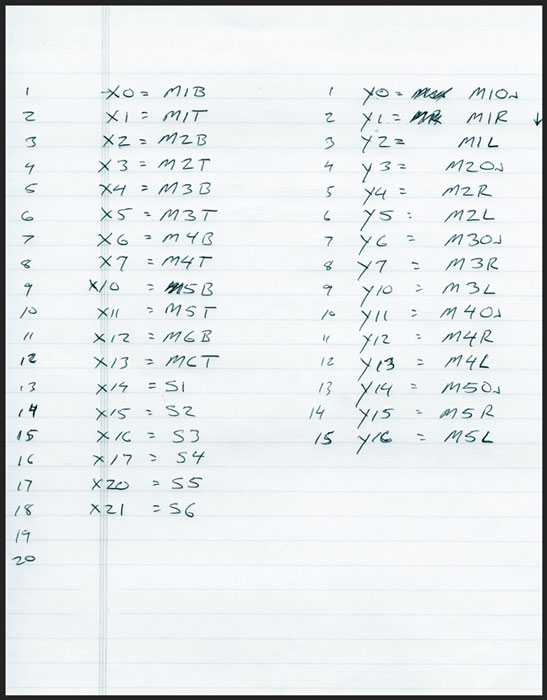 1 X0 = M1B
2 X1 = M1T
3 X2 = M2B
4 X3 = M2T
5 X4 = M3B
6 X5 = M3T
7 X6 = M4B
8 X7 = M4T
9 X10 = M5B
10 X11 = M5T
11 X12 = M6B
12 X13 = M6T
13 X14 = S1
14 X15 = S2
15 X16 = S3
16 X17 = S4
17 X20 = S5
18 X21 = S6
19
20
1 Y0 = M1ON
2 Y1 = M1R ↓
3 Y2 = M1L
4 Y3 = M2ON
5 Y4 = M2R
6 Y5 = M2L
7 Y6 = M3ON
8 Y7 = M3R
9 Y10 = M3L
10 Y11 = M4ON
11 Y12 = M4R
12 Y13 = M4L
13 Y14 = M5ON
14 Y15 = M5R
15 Y16 = M5L